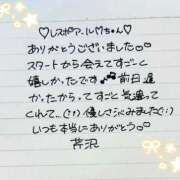 ♡レスポアール♡ちゃん♡
ありがとうございました
スタートから会えてすごーく
嬉しかったです♪前日遅
かったからってすごく気遣って
くれて…(;;)優しさにみました(;;)
いつも本当にありがとう
芹沢